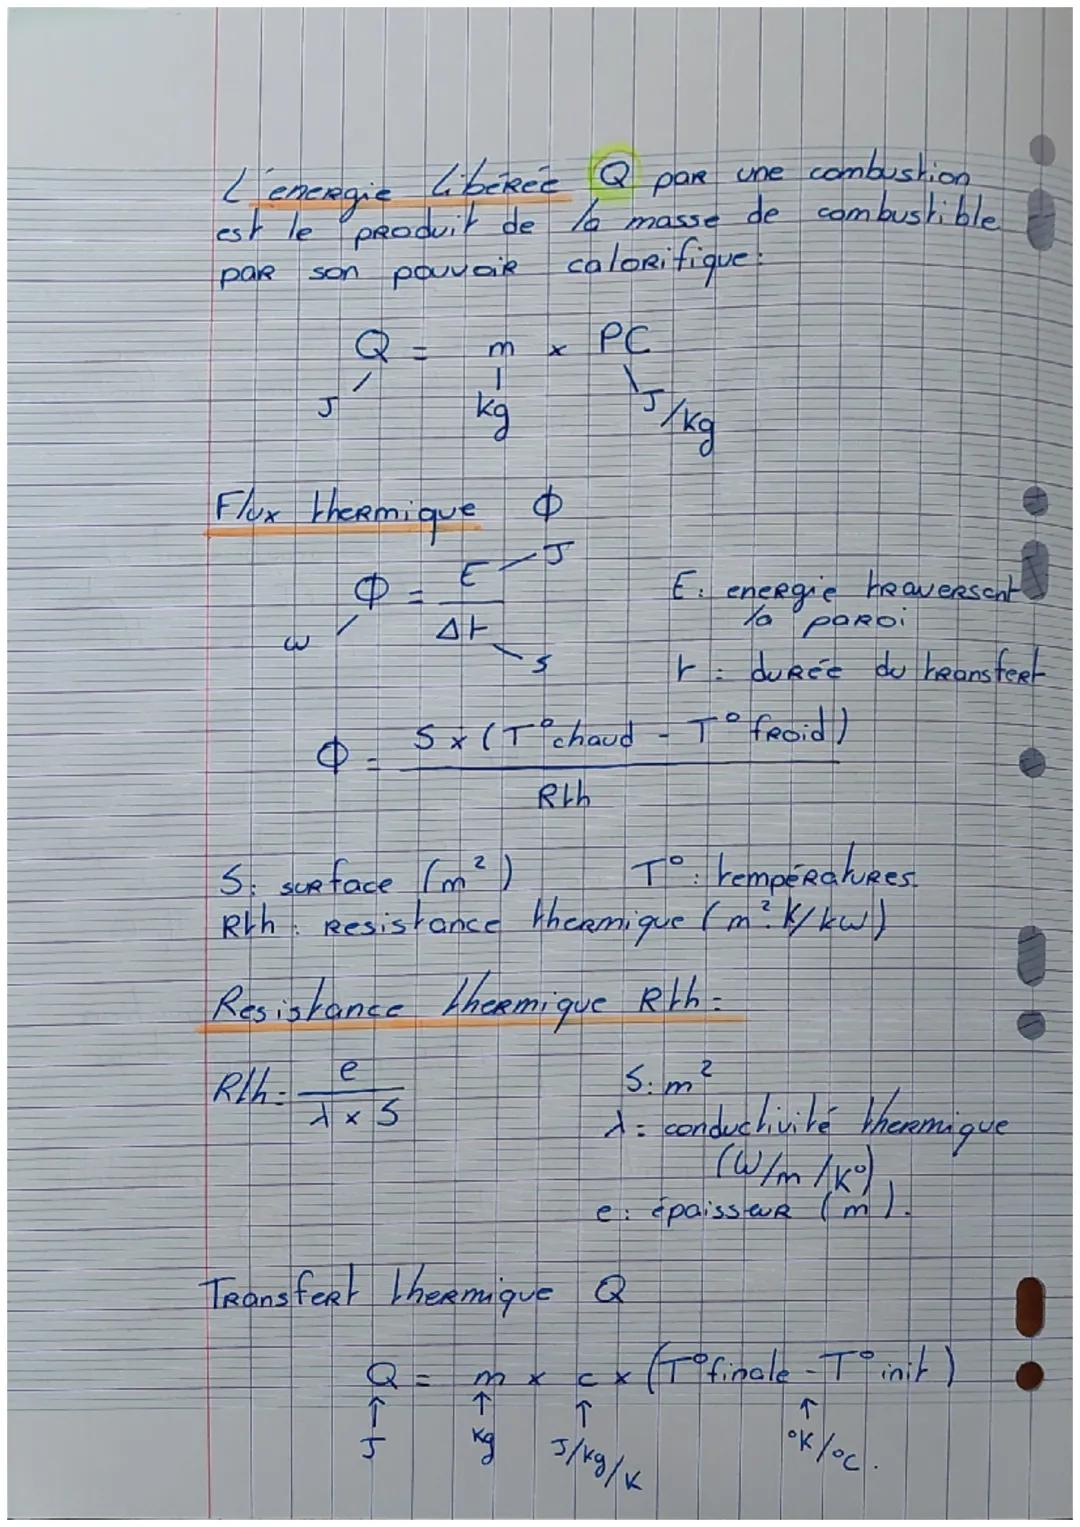 L'énergie libérée Q par une combustion
est le produit de la masse de combustible
par son pouvoir calorifique:
Q = m x PC
J kg J/kg
Flux thermique Φ
Φ = E / Δt
J
W
s
E: energie traversant
la paroi
t: durée du transfert
Φ = S x (T° chaud - T° froid) / Rth
S: surface (m²) T°: températures.
Rth: Resistance thermique (m².K/kW)
Resistance thermique Rth=
Rth = e / λ x S
S: m²
λ= conductivité thermique
(W/m/K°)
e: épaisseur (m).
Transfert thermique Q
Q = m x c x (T° finale - T° init)
↑ ↑ ↑ ↑
J kg J/kg/K °K/°C.